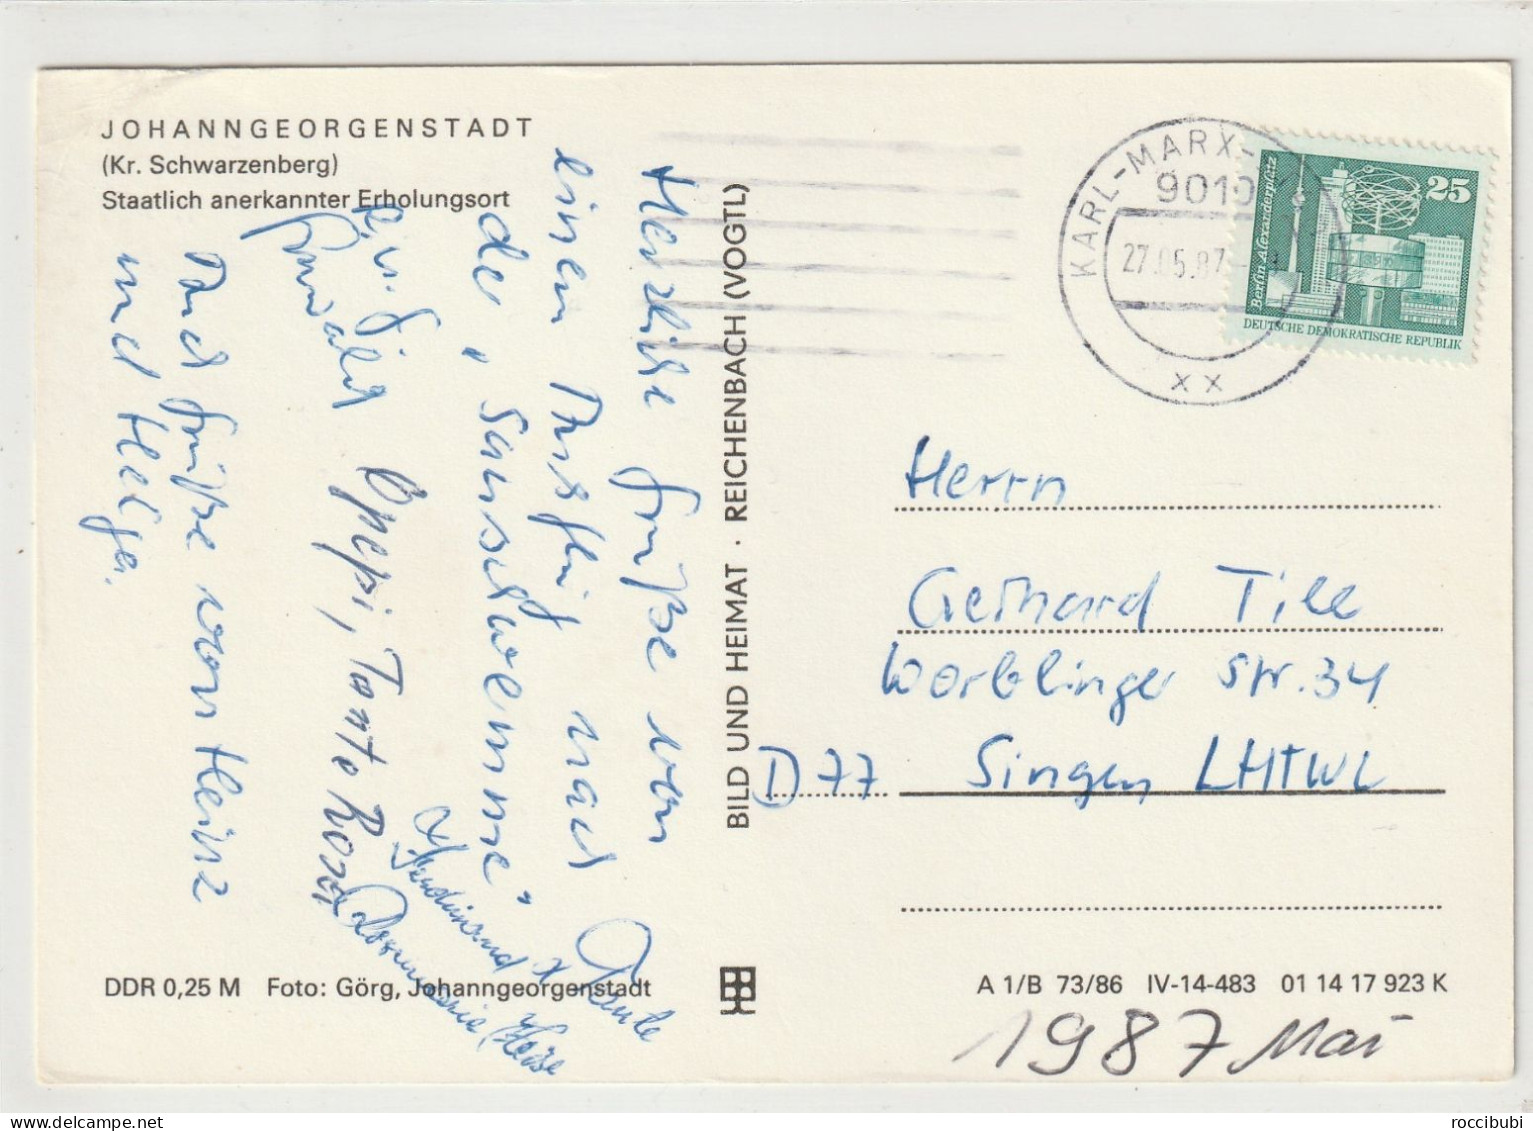 JOHANNGEORGENSTADT
(Kr. Schwarzenberg)
Staatlich anerkannter Erholungsort
Herzliche Grüße von
einen Ausflug nach
der „Sauschwemme“
Opepi, Tante Rosa
Ferdinand
Tante
Rosemarie Heise
Und Grüße von Heinz
und Helga.
BILD UND HEIMAT · REICHENBACH (VOGTL)
KARL-MARX-
9010
27.05.87
XX
25
Berlin-Alexanderplatz
DEUTSCHE DEMOKRATISCHE REPUBLIK
Herrn
Gerhard Till
Worblinger Str. 34
D 77 Singen /HTWL
DDR 0,25 M Foto: Görg, Johanngeorgenstadt
A 1/B 73/86 IV-14-483 01 14 17 923 K
1987 Mai
roccibubi